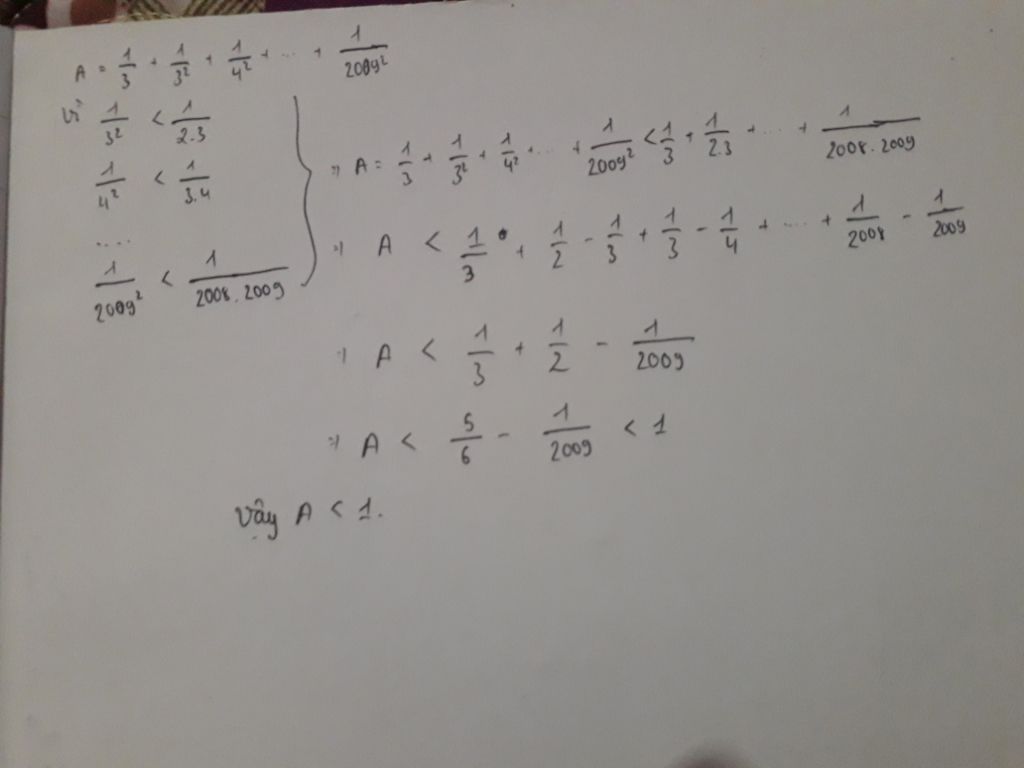 A = 1/3 + 1/3² + 1/4² + ... + 1/2009²
Vì 1/3² < 1/2.3
1/4² < 1/3.4
....
1/2009² < 1/2008.2009
⇒ A = 1/3 + 1/3² + 1/4² + ... + 1/2009² < 1/3 + 1/2.3 + ... + 1/2008.2009
⇒ A < 1/3 + 1/2 - 1/3 + 1/3 - 1/4 + ... + 1/2008 - 1/2009
⇒ A < 1/3 + 1/2 - 1/2009
⇒ A < 5/6 - 1/2009 < 1
Vậy A < 1.